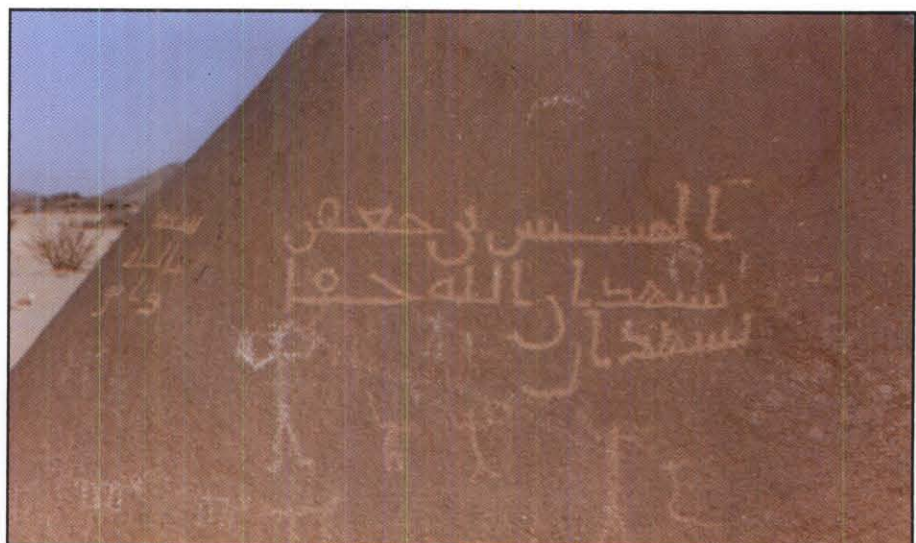 الحسين بن جعفر
يشهد ان الله حقا
يشهد ان